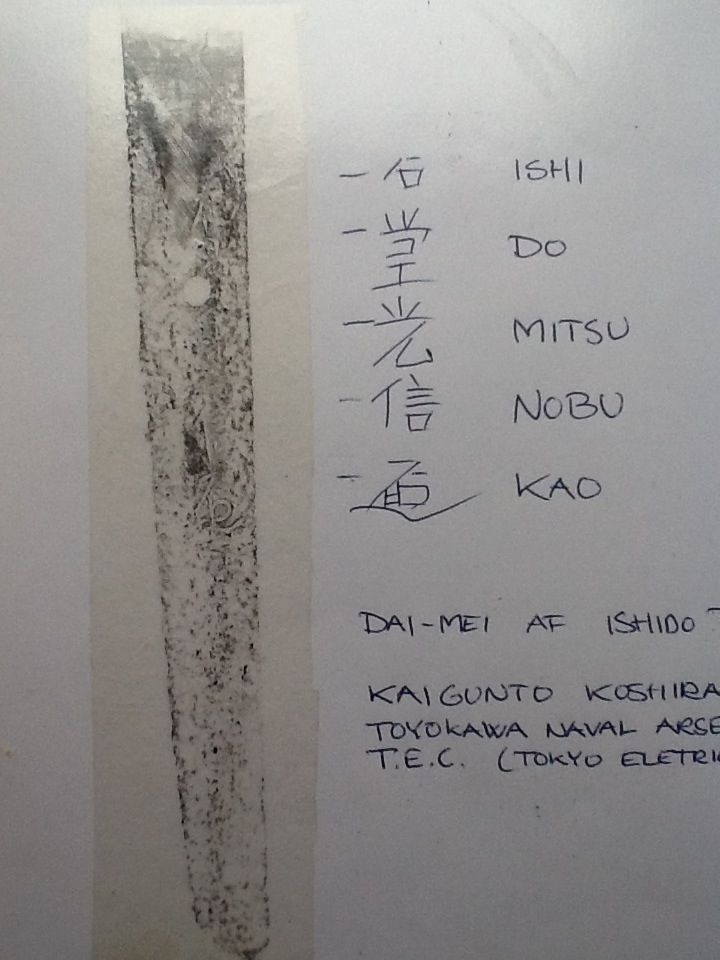 一 石 ISHI
一 堂 DO
一 光 MITSU
一 信 NOBU
一 KAO
DAI-MEI AF ISHIDO
KAIGUNTO KOSHIRA
TOYOKAWA NAVAL ARSE
T.E.C. (TOKYO ELETRI